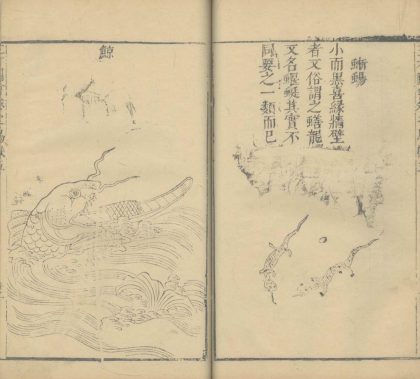 蜥蜴
小而黑喜緣牆壁
者又俗謂之蟮龍
又名蝘蜓其實不
同要之一類而已
鯨